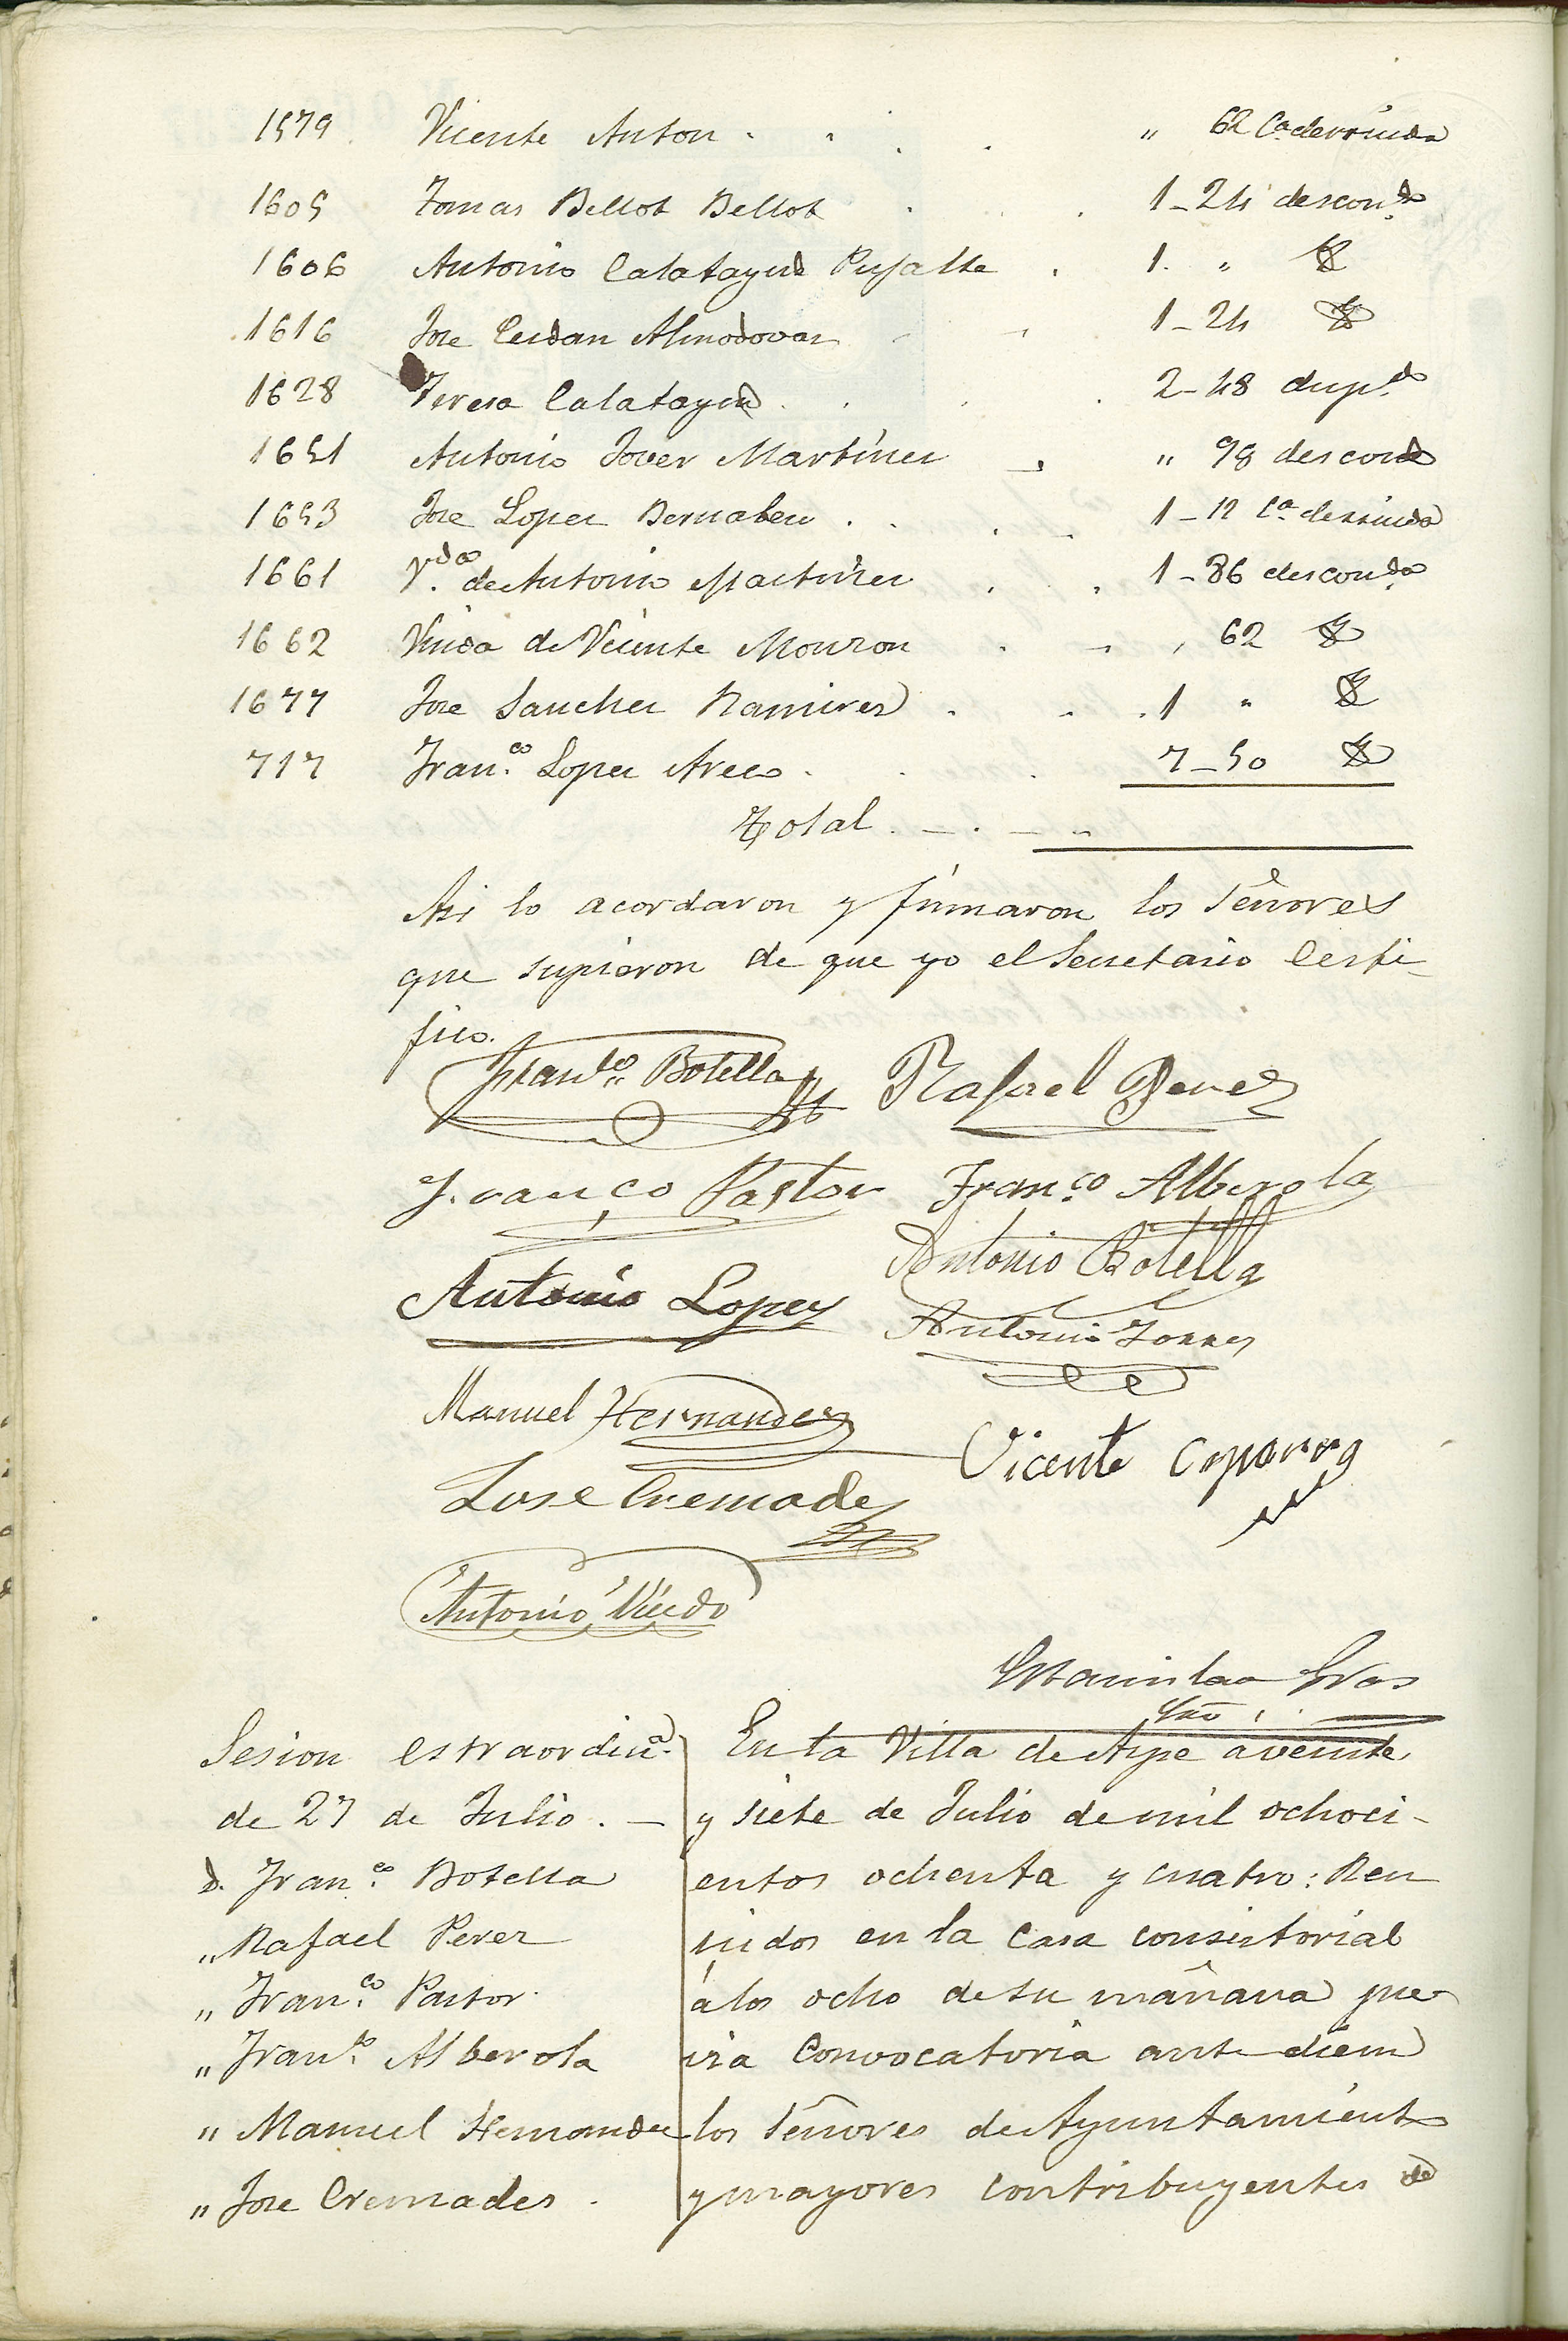 1579 Vicente Anton . . . . " 62 Ca derruida
1605 Tomas Bellot Bellot . . 1-24 descondo
1606 Antonio Calatayud Pujalte . 1. "
1616 Jose Cerdan Almodovar 1-24
1628 Teresa Calatayud . . . . 2-48 dupdo
1651 Antonio Jover Martinez " 98 descondo
1653 Jose Lopez Bernabeu . . . 1-12 Ca derruida
1661 Vda de Antonio Martinez . . 1-86 descondo
1662 Viuda de Vicente Monzon . . , 62
1677 Jose Sanchez Ramirez . . . 1 "
717 Franco Lopez Arez . . . 7-50
Total . - . -
Asi lo acordaron y firmaron los Señores
que supieron de que yo el Secretario Certi-
fico.
Franco Botella Rafael Perez
Franco Pastor Franco Alberola
Antonio Botella
Antonio Lopez
Antonio Torres
Manuel Hernandez
Vicente
Jose Cremades
Antonio
Estanislao Gras
Srio
Sesion estraordina
de 27 de Julio . -
D. Franco Botella
" Rafael Perez
" Franco Pastor
" Franco Alberola
" Manuel Hernandez
" Jose Cremades .
En la Villa de Aspe a veinte
y siete de Julio de mil ochoci-
entos ochenta y cuatro: Reu
nidos en la Casa consistorial
á las ocho de su mañana pre
via Convocatoria ante diem
los Señores de Ayuntamiento
y mayores contribuyentes de